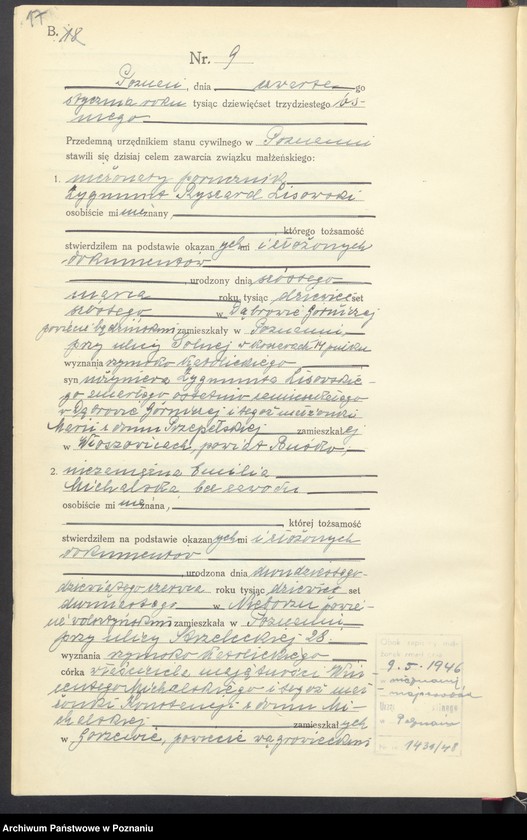 17
B. 18
Nr. 9
Poznań, dnia czwarte go
stycznia roku tysiąc dziewięćset trzydziestego ós-
mego
Przedemną urzędnikiem stanu cywilnego w Poznaniu
stawili się dzisiaj celem zawarcia związku małżeńskiego:
1. nieżonaty porucznik
Zygmunt Ryszard Lisowski
osobiście mi nieznany,
, którego tożsamość
stwierdziłem na podstawie okazanych mi i złożonych
dokumentów
, urodzony dnia szóstego
marca roku tysiąc dziewięćset
szóstego w Dąbrowie Górniczej
powiecie będzińskim zamieszkały w Poznaniu,
przy ulicy Solnej w koszarach pułku
wyznania rzymsko katolickiego
syn inżyniera Zygmunta Lisowskie-
go zmarłego ostatnio zamieszkałego
w Dąbrowie Górniczej i tegoż małżonki
Marii z domu zamieszkałej
w powiat
2. niezamężna Emilia
Michalska bez zawodu
osobiście mi nieznana,
, której tożsamość
stwierdziłem na podstawie okazanych mi i złożonych
dokumentów
, urodzona dnia dwudziestego
dziewiątego czerwca roku tysiąc dziewięć set
dwunastego w powie-
cie zamieszkała w Poznaniu
przy ulicy Strzeleckiej 28
wyznania rzymsko katolickiego
córka właściciela majętności Win-
centego Michalskiego i tegoż mał-
żonki Konstancji z domu Mi-
chalskiej zamieszkałych
w Gorzewie, powiecie wągrowieckim
9.5.1946
1431/48
Archiwum Państwowe w Poznaniu